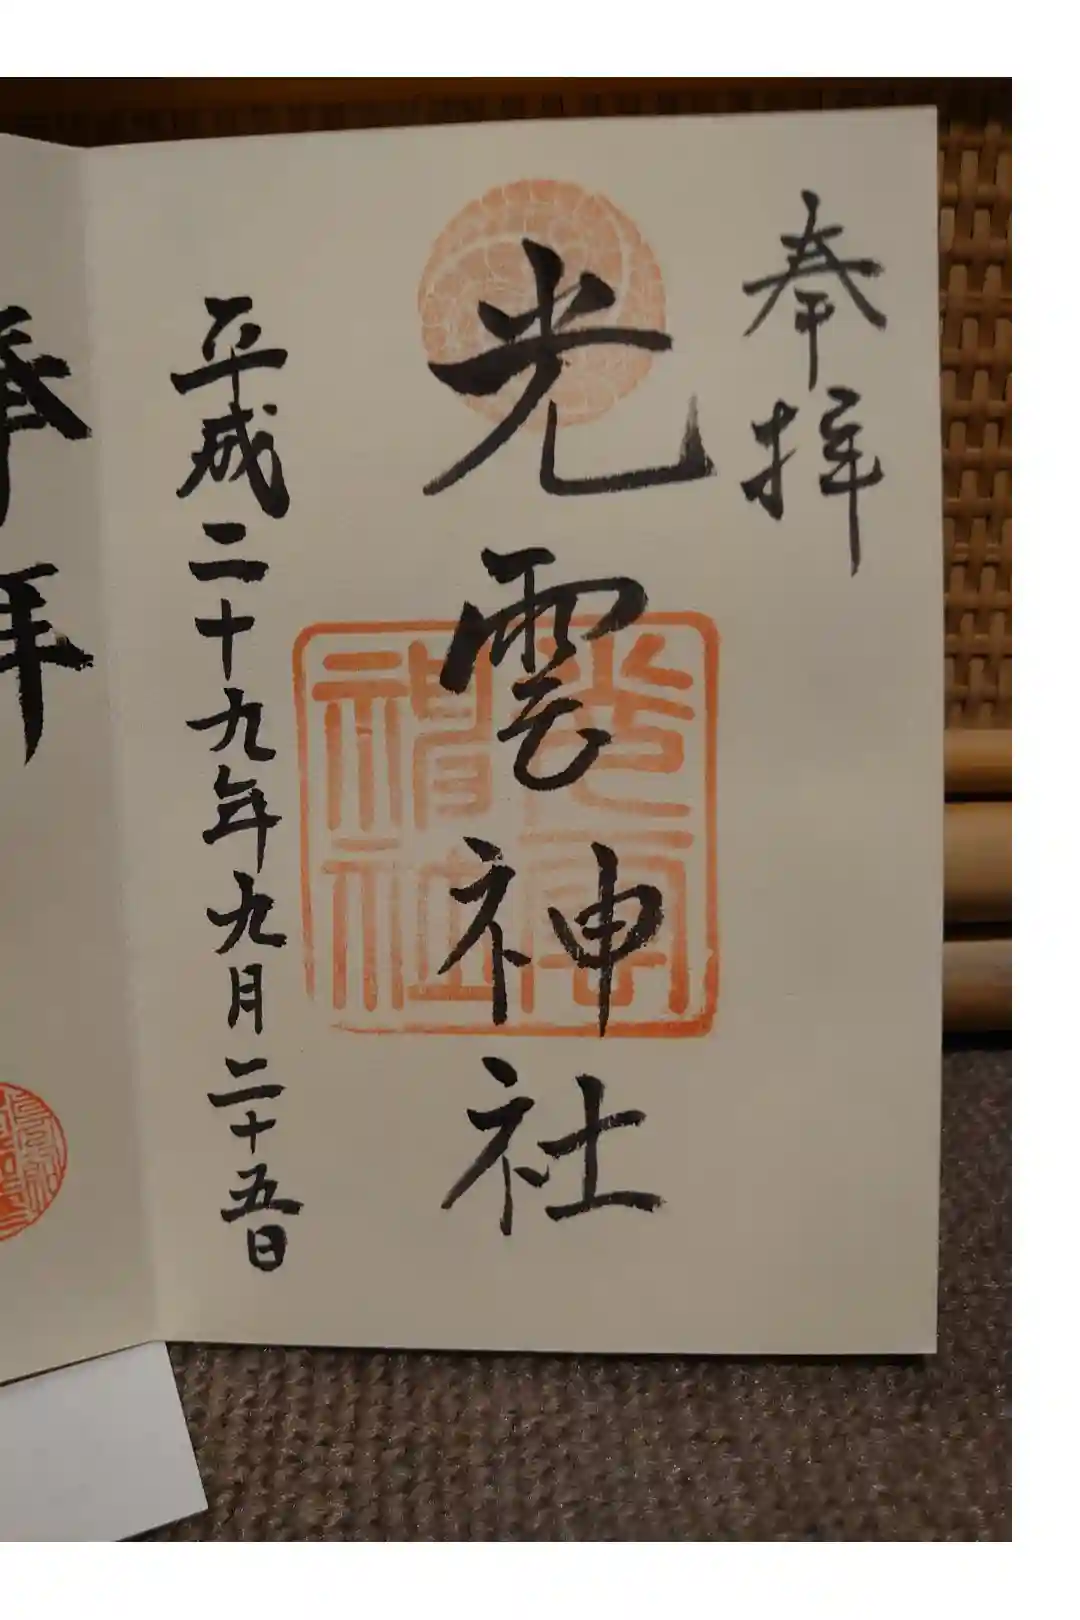 奉拝
光雲神社
光雲神社
平成二十九年九月二十五日
奉拝